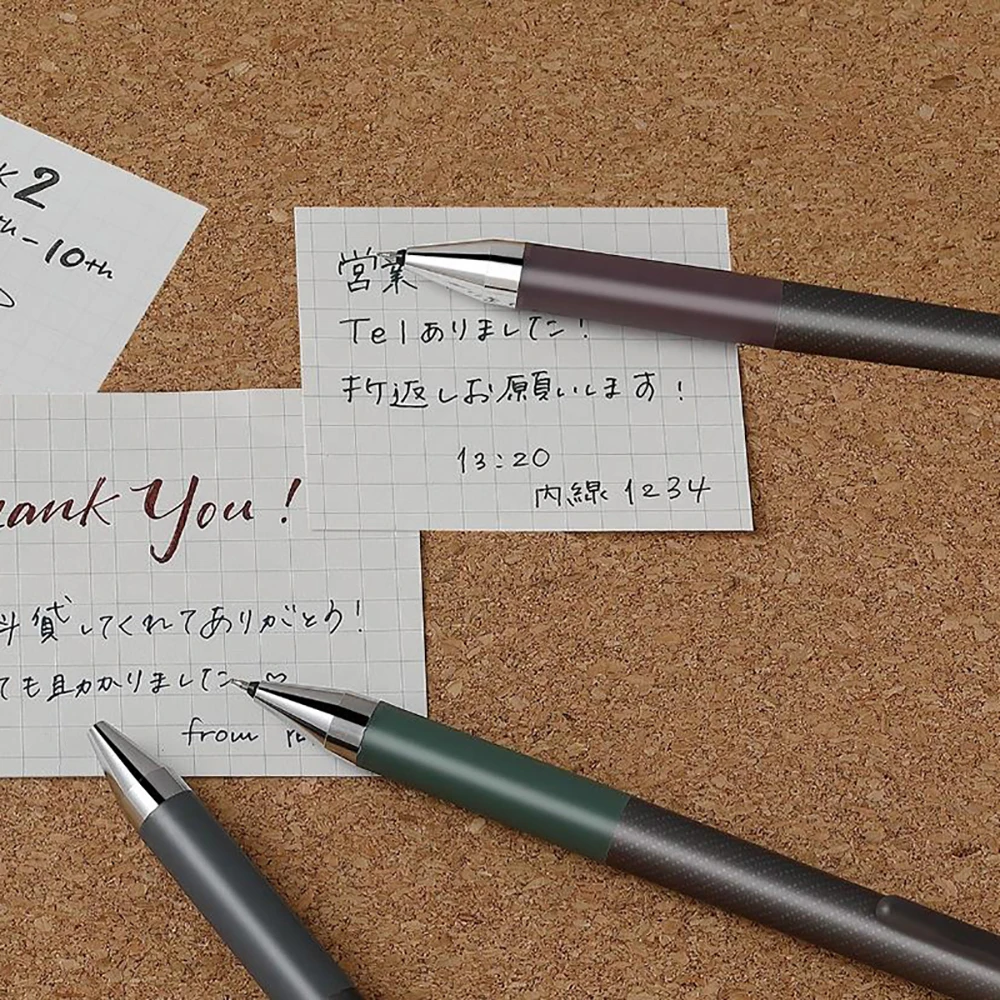 2
th-10th
営業
Telありました!
折返しお願いします!
13:20
内線 1234
hank You!
貸してくれてありがとう!
ても助かりました♡
from